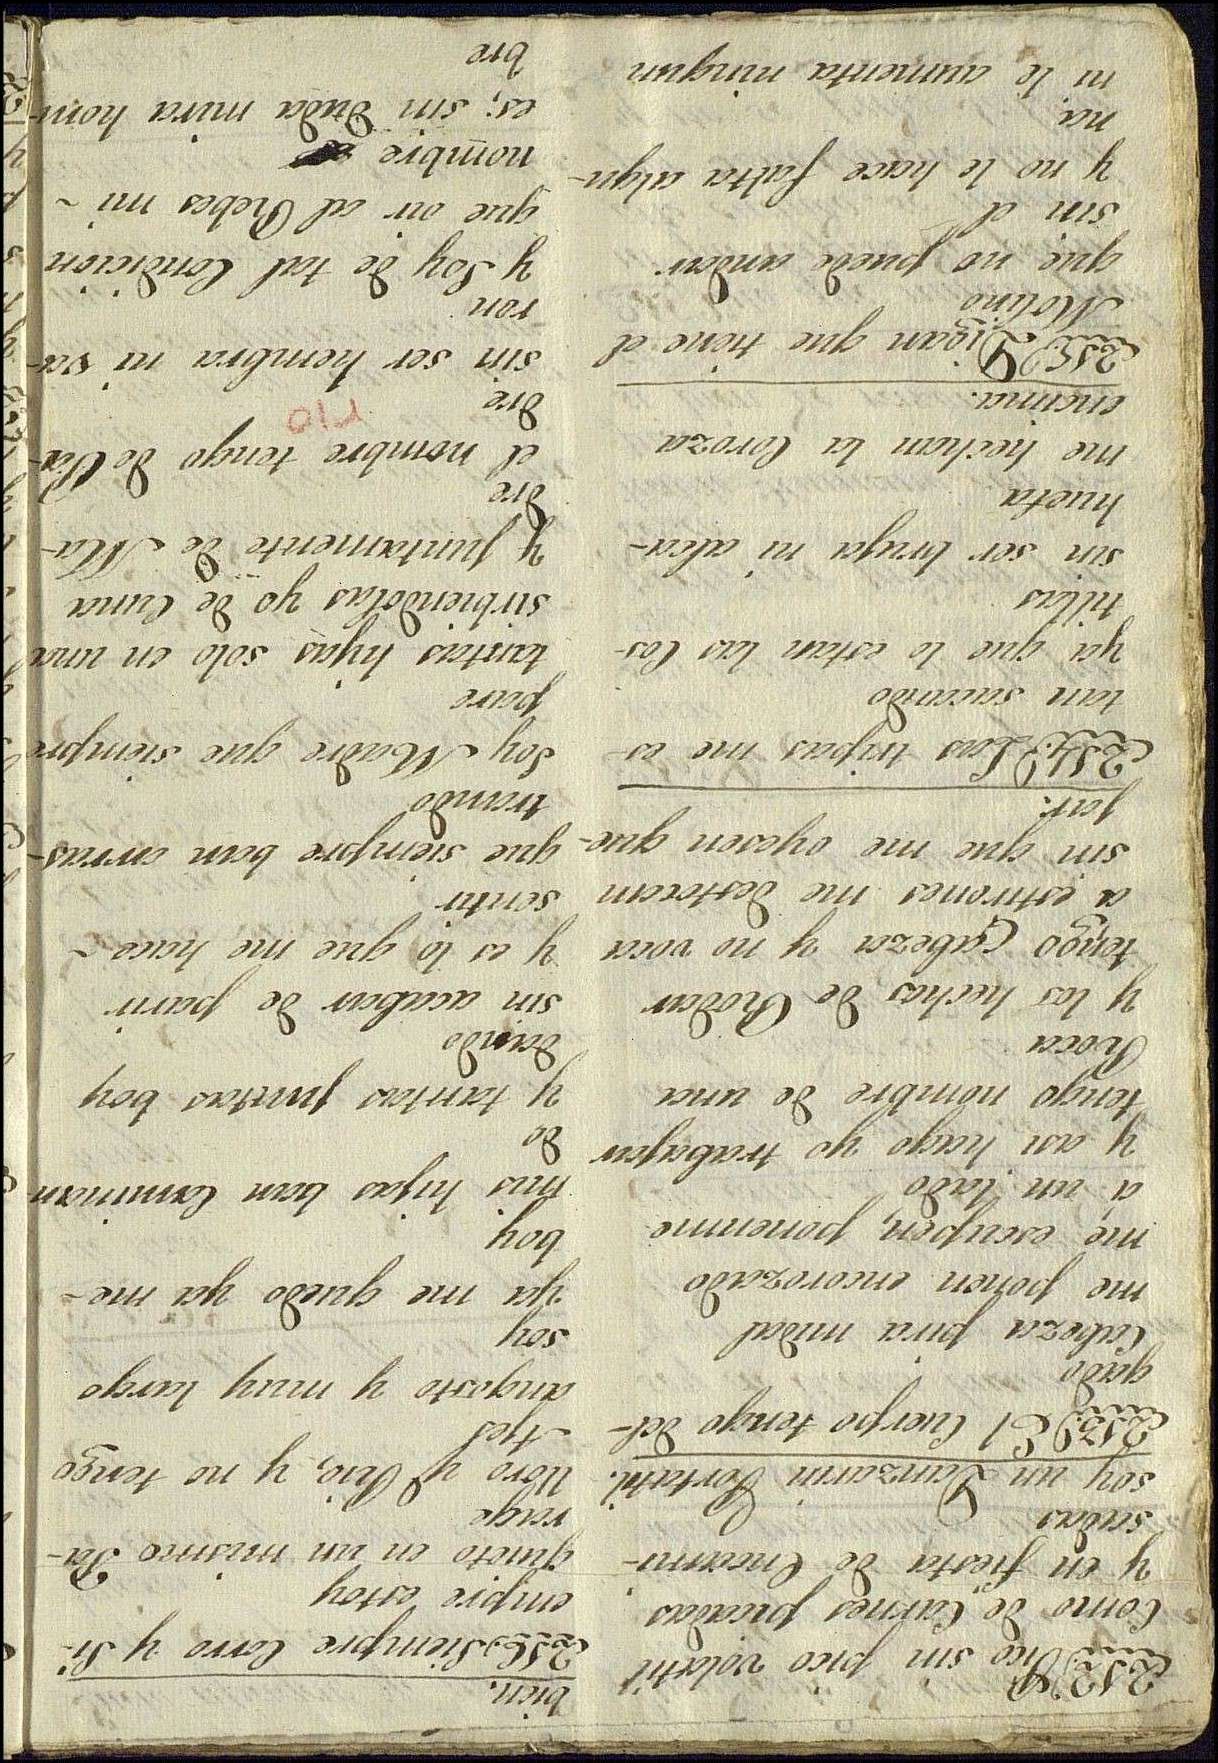 212. Pico sin pico volatil
Como de Carnes picadas
y en fiesta de Encami-
sadas
soy un Danzarin Portatil.
213. El Cuerpo tengo del-
gado
Cabeza para mi dal
me ponen encorozado
me escupen, ponenme
a un lado
y asi hago yo trabajar
tengo nombre de una
Roca
y los hechos de Rodar
tengo Cabeza y no voca
a estirones me destocan
sin que me oyesen que-
jar.
214. Las tripas me es-
tan sacando
ya que lo estan las Cos-
tillas
sin ser bruja ni alca-
hueta
me hechan la Coroza
encima.
215. Digan que tiene el
Molino
que no puede andar
sin el
y no le hace falta algu-
na
ni le aumenta ningun
bien.
216. Siempre Corro y Si-
empre estoy
quieto en un mismo Pa-
rage
lloro y Rio, y no tengo
Ajes
angosto y muy largo
soy
ya me quedo ya me-
boy
mis hijas ban Caminan
do
y tantas juntas boy
dando
sin acabar de parir
y es lo que me hace-
sentir
que siempre ban arras-
trando
Soy Madre que siempre
pare
tantas hijas solo en una
sirbiendolas yo de Cuna
y juntamente de Ma-
dre
el nombre tengo de Pa-
dre
rio
sin ser hembra ni va-
ron
y Soy de tal Condicion
que oir al Rebes mi-
nombre
es; sin duda mira hom-
bre